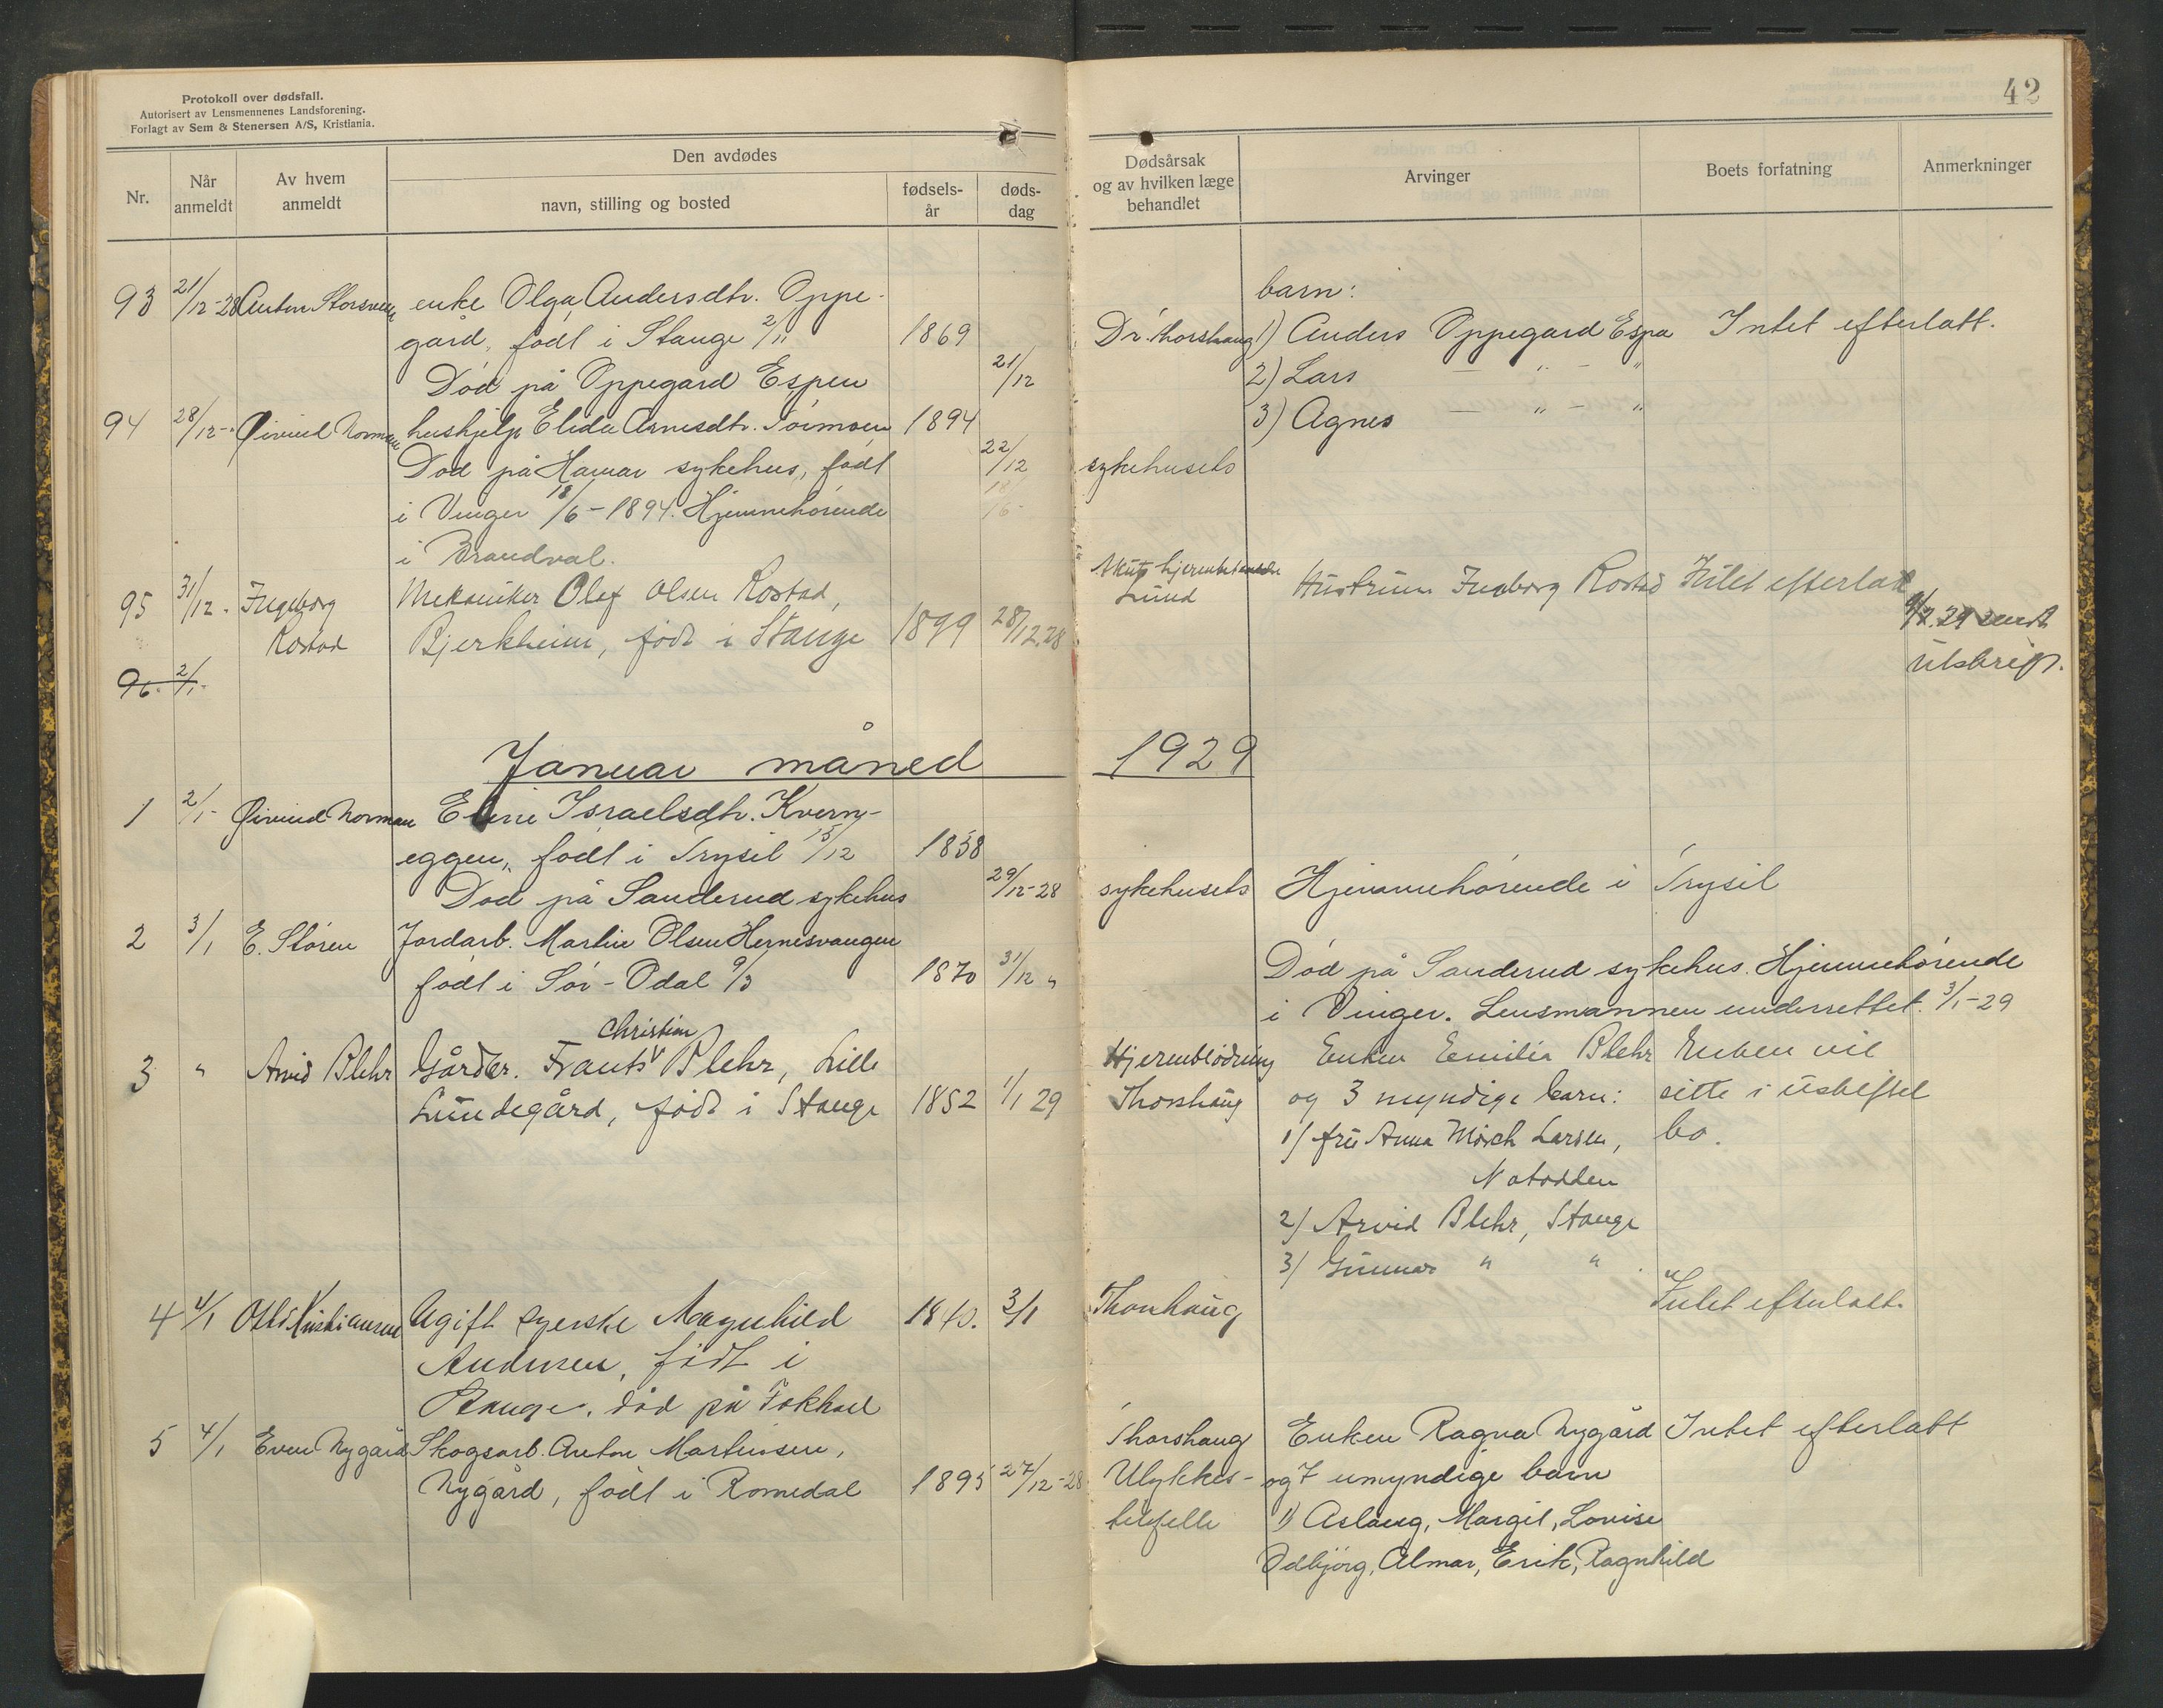 Protokoll over dødsfall.
Autorisert av Lensmennenes Landsforening.
Forlagt av Sem & Stenersen A/S, Kristiania.
42
Nr.
Når anmeldt
Av hvem anmeldt
Den avdødes
navn, stilling og bosted
fødsels-år
døds-dag
Dødsårsak og av hvilken læge behandlet
Arvinger
Boets forfatning
Anmerkninger
93 21/12-28 Anton enke Olga Andersdtr. Oppe-
gård, født i Stange 2/11 1869
Død på Oppegard Espen 21/12
barn:
Dr. Thorshaug 1) Anders Oppegard Espa Intet efterlatt.
2) Lars — " — "
3) Agnes — " — "
94 28/12- Øivind Norman hushjelp Elida Arnesdtr. 1894
Død på Hamar sykehus, født 22/12 sykehusets
i Vinger 18/6-1894. Hjemmehørende
i Brandval.
95 31/12. Ingeborg Rostad Mekaniker Olaf Olsen Rostad,
Bjerkheim, født i Stange 1899 28/12.28
Akut
Lund
Hustruen Ingeborg Rostad Intet efterlatt
29 sendt
utskrift.
96. 2/1-
Januar måned 1929
1 2/1- Øivind Norman Eline Israelsdtr. Kvern-
eggen, født i Trysil 15/12 1858
Død på Sanderud sykehus 29/12-28 sykehusets Hjemmehørende i Trysil
2 3/1 E. Støren Jordarb. Martin Olsen Hernesvangen
født i Sør-Odal 9/3 1870 31/12 "
Død på Sanderud sykehus. Hjemmehørende
i Vinger. Lensmannen underrettet. 3/1-29
3 " Arvid Blehr Gårdbr. Frants Christian Blehr, Lille
Lundegård, født i Stange 1852 1/1 29
Hjerneblødning
Thorshaug
Enken Emilia Blehr Enken vil
og 3 myndige barn: sitte i uskiftet
1) fru Anna Mørch Larsen, bo.
Notodden
2) Arvid Blehr, Stange
3) Gunnar " "
4 4/1 Otto Kristiansen Ugift syerske Magnhild 1840. 3/1 Thorshaug Intet efterlatt.
Andersen, født i
Stange. død på Fokhol
5 4/1 Even Nygård Skogsarb. Anton Martinsen,
Nygård, født i Romedal 1895 27/12-28
Thorshaug
Ulykkes-
tilfelle
Enken Ragna Nygård Intet efterlatt
og 7 umyndige barn
1) Aslaug, Margit, Lovise
Odbjørg, Almar, Erik, Ragnhild